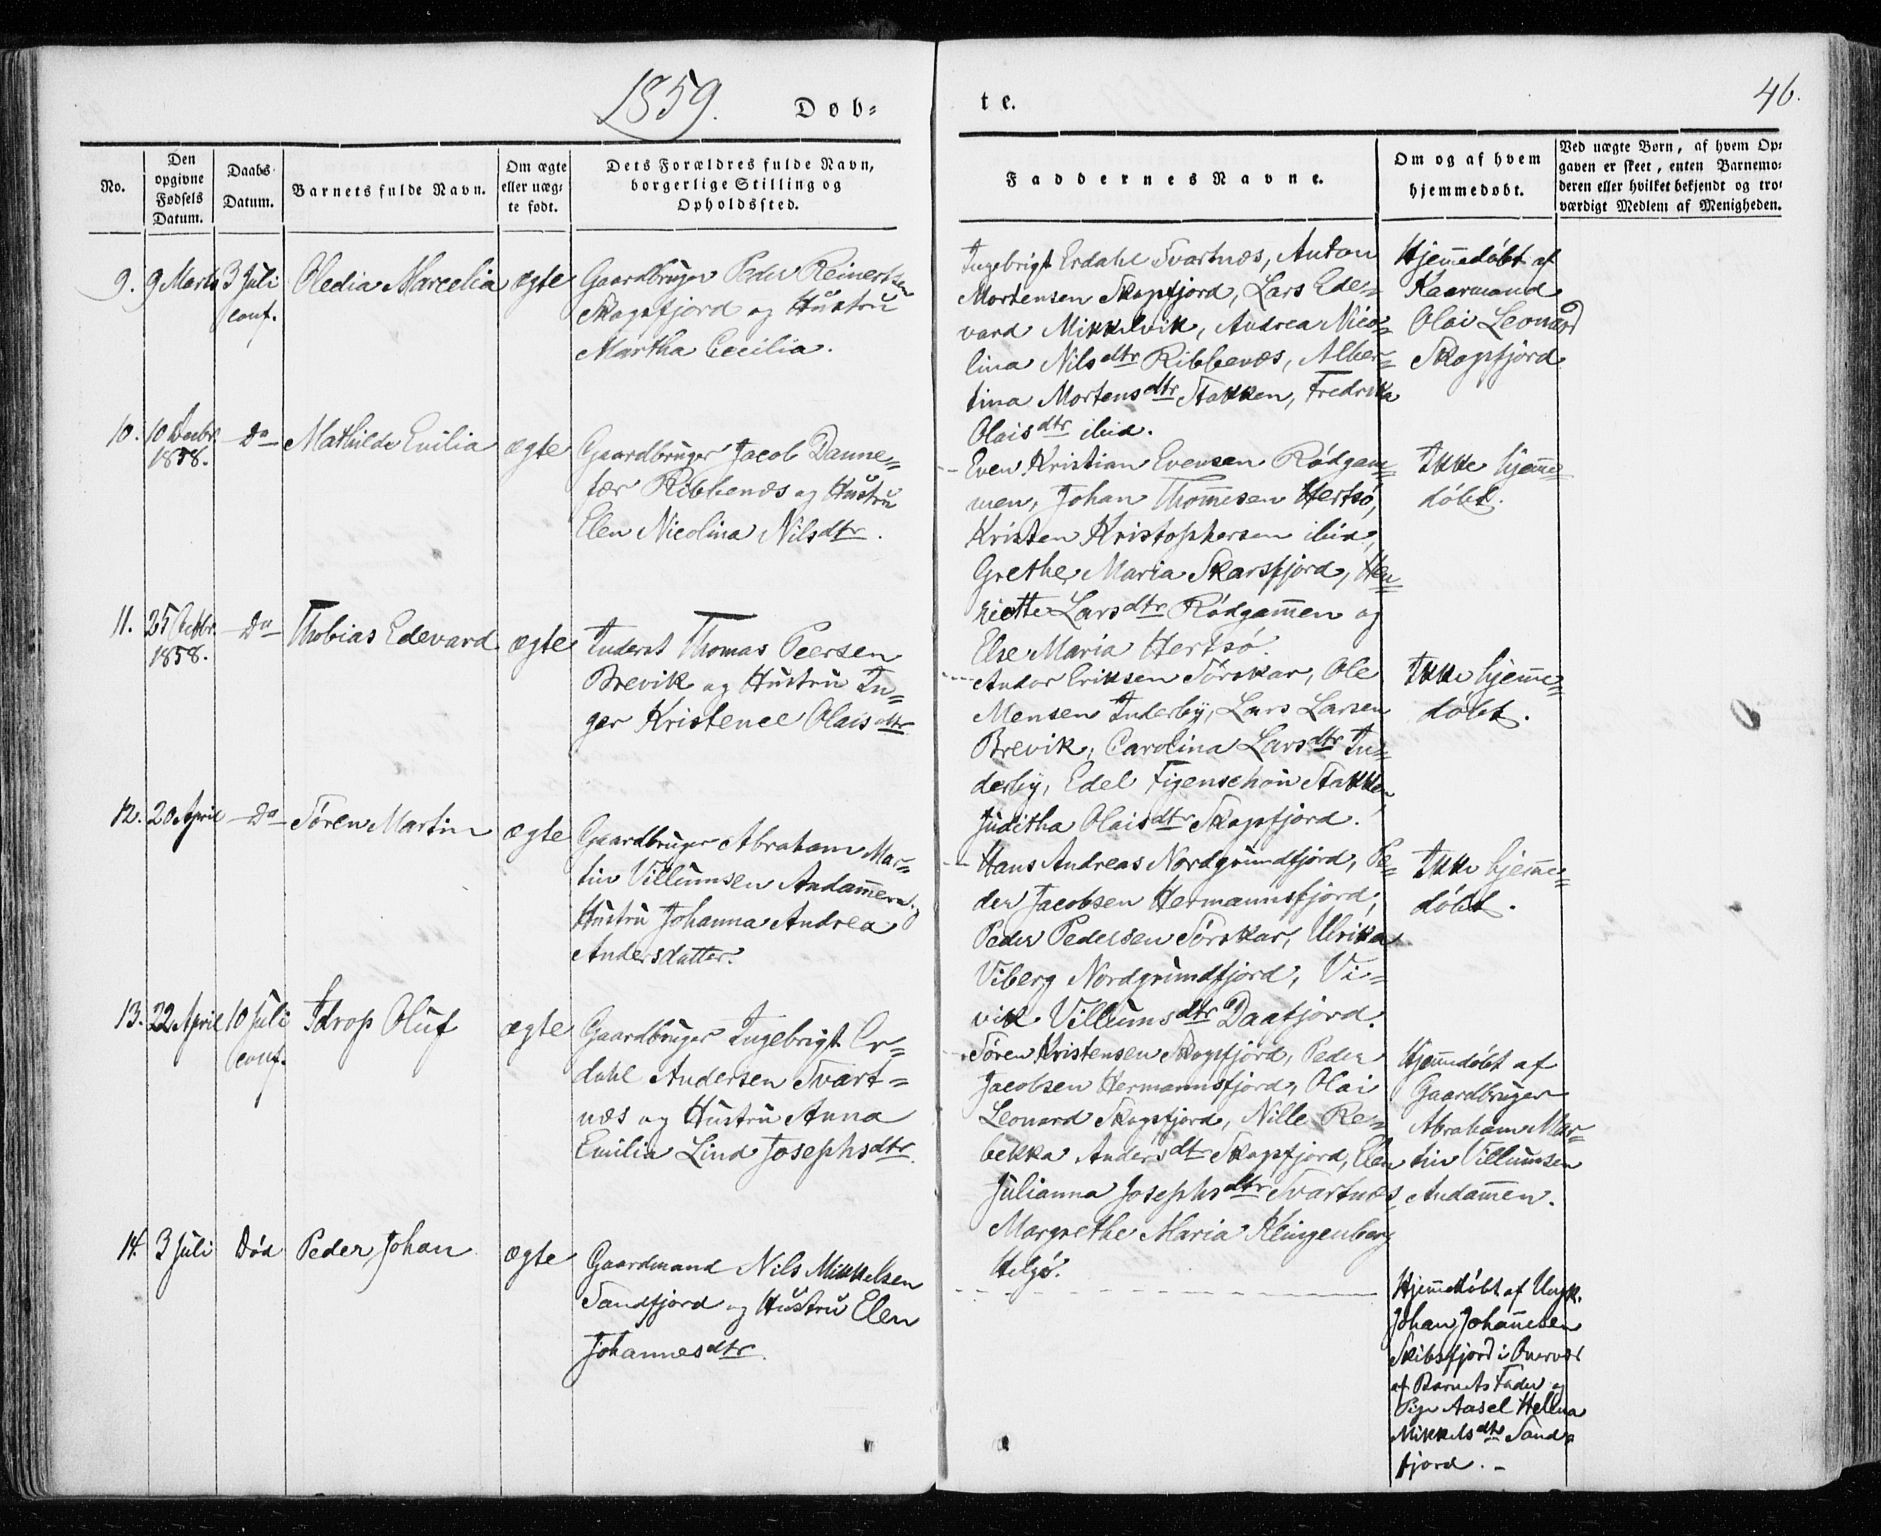 1859.
Døb-
te.
46.
No.
Den
opgivne
Fødsels
Datum.
Daabs-
Datum.
Barnets fulde Navn.
Om ægte
eller uæg-
te født.
Dets Forældres fulde Navn,
borgerlige Stilling og
Opholdssted.
Faddernes Navne.
Om og af hvem
hjemmedøbt.
Ved uægte Børn, af hvem Op-
gaven er skeet, enten Barnemo-
deren eller hvilket bekjendt og tro-
værdigt Medlem af Menigheden.
9.
9 Marts
3 Juli
conf.
Oledia Marcelia
ægte
Gaardbruger Peder Reinertsen
Skogsfjord og Hustru
Martha Cecilia.
Ingebrigt Erdahl Svartnæs, Anton
Mortensen Skogsfjord, Lars Ede=
vard Mikkelvik, Andrea Nico=
lina Nilsdtr Ribbenæs, Alber=
tina Mortensdtr Stakken, Fredrika
Olaisdtr ibid.
Hjem̅edøbt af
Kaarmand
Olai Leonard
Skogsfjord
10.
10 Decbr.
1858.
Do
Mathilde Emilia
ægte
Gaardbruger Jacob Danne=
fær Ribbenæs og Hustru
Elen Nicolina Nilsdtr.
Even Kristian Evensen Rødgam=
men, Johan Thom̅esen Hertsø,
Kristen Kristophersen ibid.,
Grethe Maria Skarsfjord, Hen=
riette Larsdtr Rødgam̅en og
Else Maria Hertsø.
Ikke hjem̅e=
døbt.
11.
25 Octbr.
1858.
Do
Thobias Edevard
ægte
Inderst Thomas Peersen
Brevik og Hustru In=
ger Kristence Olaisdtr
Andor Eriksen Sørskar, Ole
Mensen Inderby, Lars Larsen
Brevik, Carolina Larsdtr In=
derby, Edel Figenschou Stakken,
Juditha Olaisdtr Skogsfjord.
Ikke hjem̅e=
døbt.
12.
20 April
Do
Søren Martin
ægte
Gaardbruger Abraham Mar=
tin Villumsen Andam̅en og
Hustru Johanna Andrea
Andersdatter.
Hans Andreas Nordgrundfjord, Pe=
der Jacobsen Hermannsfjord,
Peder Pedersen Sørskar, Ulrika
Viberg Nordgrundfjord, Vi=
vik Villumsdtr Daafjord.
Ikke hjem̅e=
døbt.
13.
22 April
10 Juli
conf.
Idrop Oluf
ægte
Gaardbruger Ingebrigt Er=
dahl Andersen Svart=
næs og Hustru Anna
Emilia Lind Josephsdtr.
Søren Kristensen Skogsfjord, Peder
Jacobsen Hermannsfjord, Olai
Leonard Skogsfjord, Nille Re=
bekka Andersdtr Skogsfjord, Elen
Julianna Josephsdtr Svartnæs,
Margrethe Maria Klingenberg
Helgø.
Hjem̅edøbt af
Gaardbruger
Abraham Mar=
tin Villumsen
Andam̅en.
14.
3 Juli
Død
Peder Johan
ægte
Gaardmand Nils Mikkelsen
Sandfjord og Hustru Elen
Johannesdtr.
Hjem̅edøbt af Ungk.
Johan Johan̅esen
Skibsfjord i Overvær
af Barnets Fader og
Pige Aasel Helena
Mikkelsdtr Sand=
fjord.